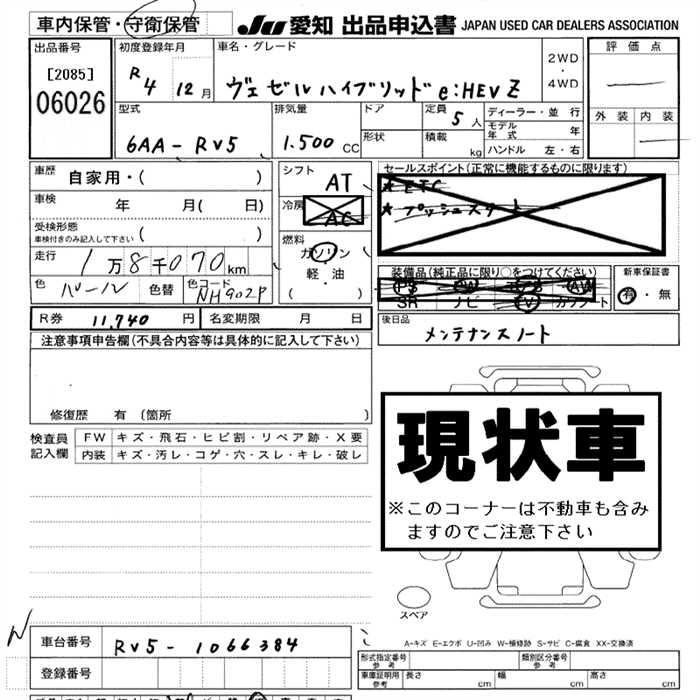 車内保管・守衛保管 JU 愛知 出品申込書 JAPAN USED CAR DEALERS ASSOCIATION
出品番号 初度登録年月 車名・グレード 評価点
[2085]
06026
R4 12月 ヴェゼルハイブリッド e:HEV Z 2WD・4WD
外装 内装
型式 排気量 ドア 定員 5人 ディーラー・並行
モデル年式 年
6AA-RV5 1.500cc 形状 積載 kg ハンドル 左・右
車歴 自家用・( )
シフト AT
セールスポイント(正常に機能するものに限ります)
車検 年 月( 日)
冷房 AC
★ETC
★プッシュスタート
受検形態
車検付きのみ記入して下さい ( )
燃料 ガソリン
軽・油
( )
走行 1万8千070km
装備品(純正品に限り○をつけてください) 新車保証書
PS PW エアB AW
SR ナビ TV カワシート
有・無
色 パール 色替 色コード NH902P
後日品
メンテナンスノート
R券 11,740円 名変期限 月 日
注意事項申告欄(不具合内容等は具体的に記入して下さい)
修復歴 有(箇所 )
現状車
※このコーナーは不動車も含み
ますのでご注意下さい
検査員
記入欄
FW キズ・飛石・ヒビ割・リペア跡・X要
内装 キズ・汚レ・コゲ・穴・スレ・キレ・破レ
スペア
A-キズ E-エクボ U-凹み W-補修跡 S-サビ C-腐食 XX-交換済
N
車台番号 RV5-1066384
登録番号
形式指定番号 参考 類別区分番号 参考
車庫証明用 参考 長さ cm 幅 cm 高さ cm